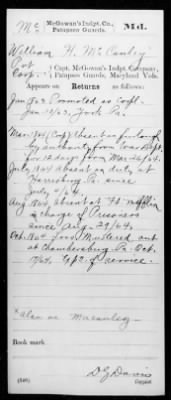 Mc McGowan's Indpt. Co., Md.
Patapsco Guards.
William H. McCauley
Pvt
Corp., Capt. McGowan's Indpt. Company,
Patapsco Guards, Maryland Vols.
Appears on Returns as follows:
Jan 1863 Promoted as Corpl.
Jan 10/63, York Pa.
Mar. 1864 (Corp) Absent on furlough
by authority from War Dept.
for 12 days from Mar 26/64.
July 1864 absent on duty at
Harrisburg Pa. since
July 4/64
Aug 1864, absent at Ft Mifflin
in charge of Prisoners
since Aug. 29/64.
Oct. 1864 Loss Mustered out
at Chambersburg Pa. Oct.
Exp. of service.
* also as Macauley
Book mark
(546)
D G Davis
Copyist